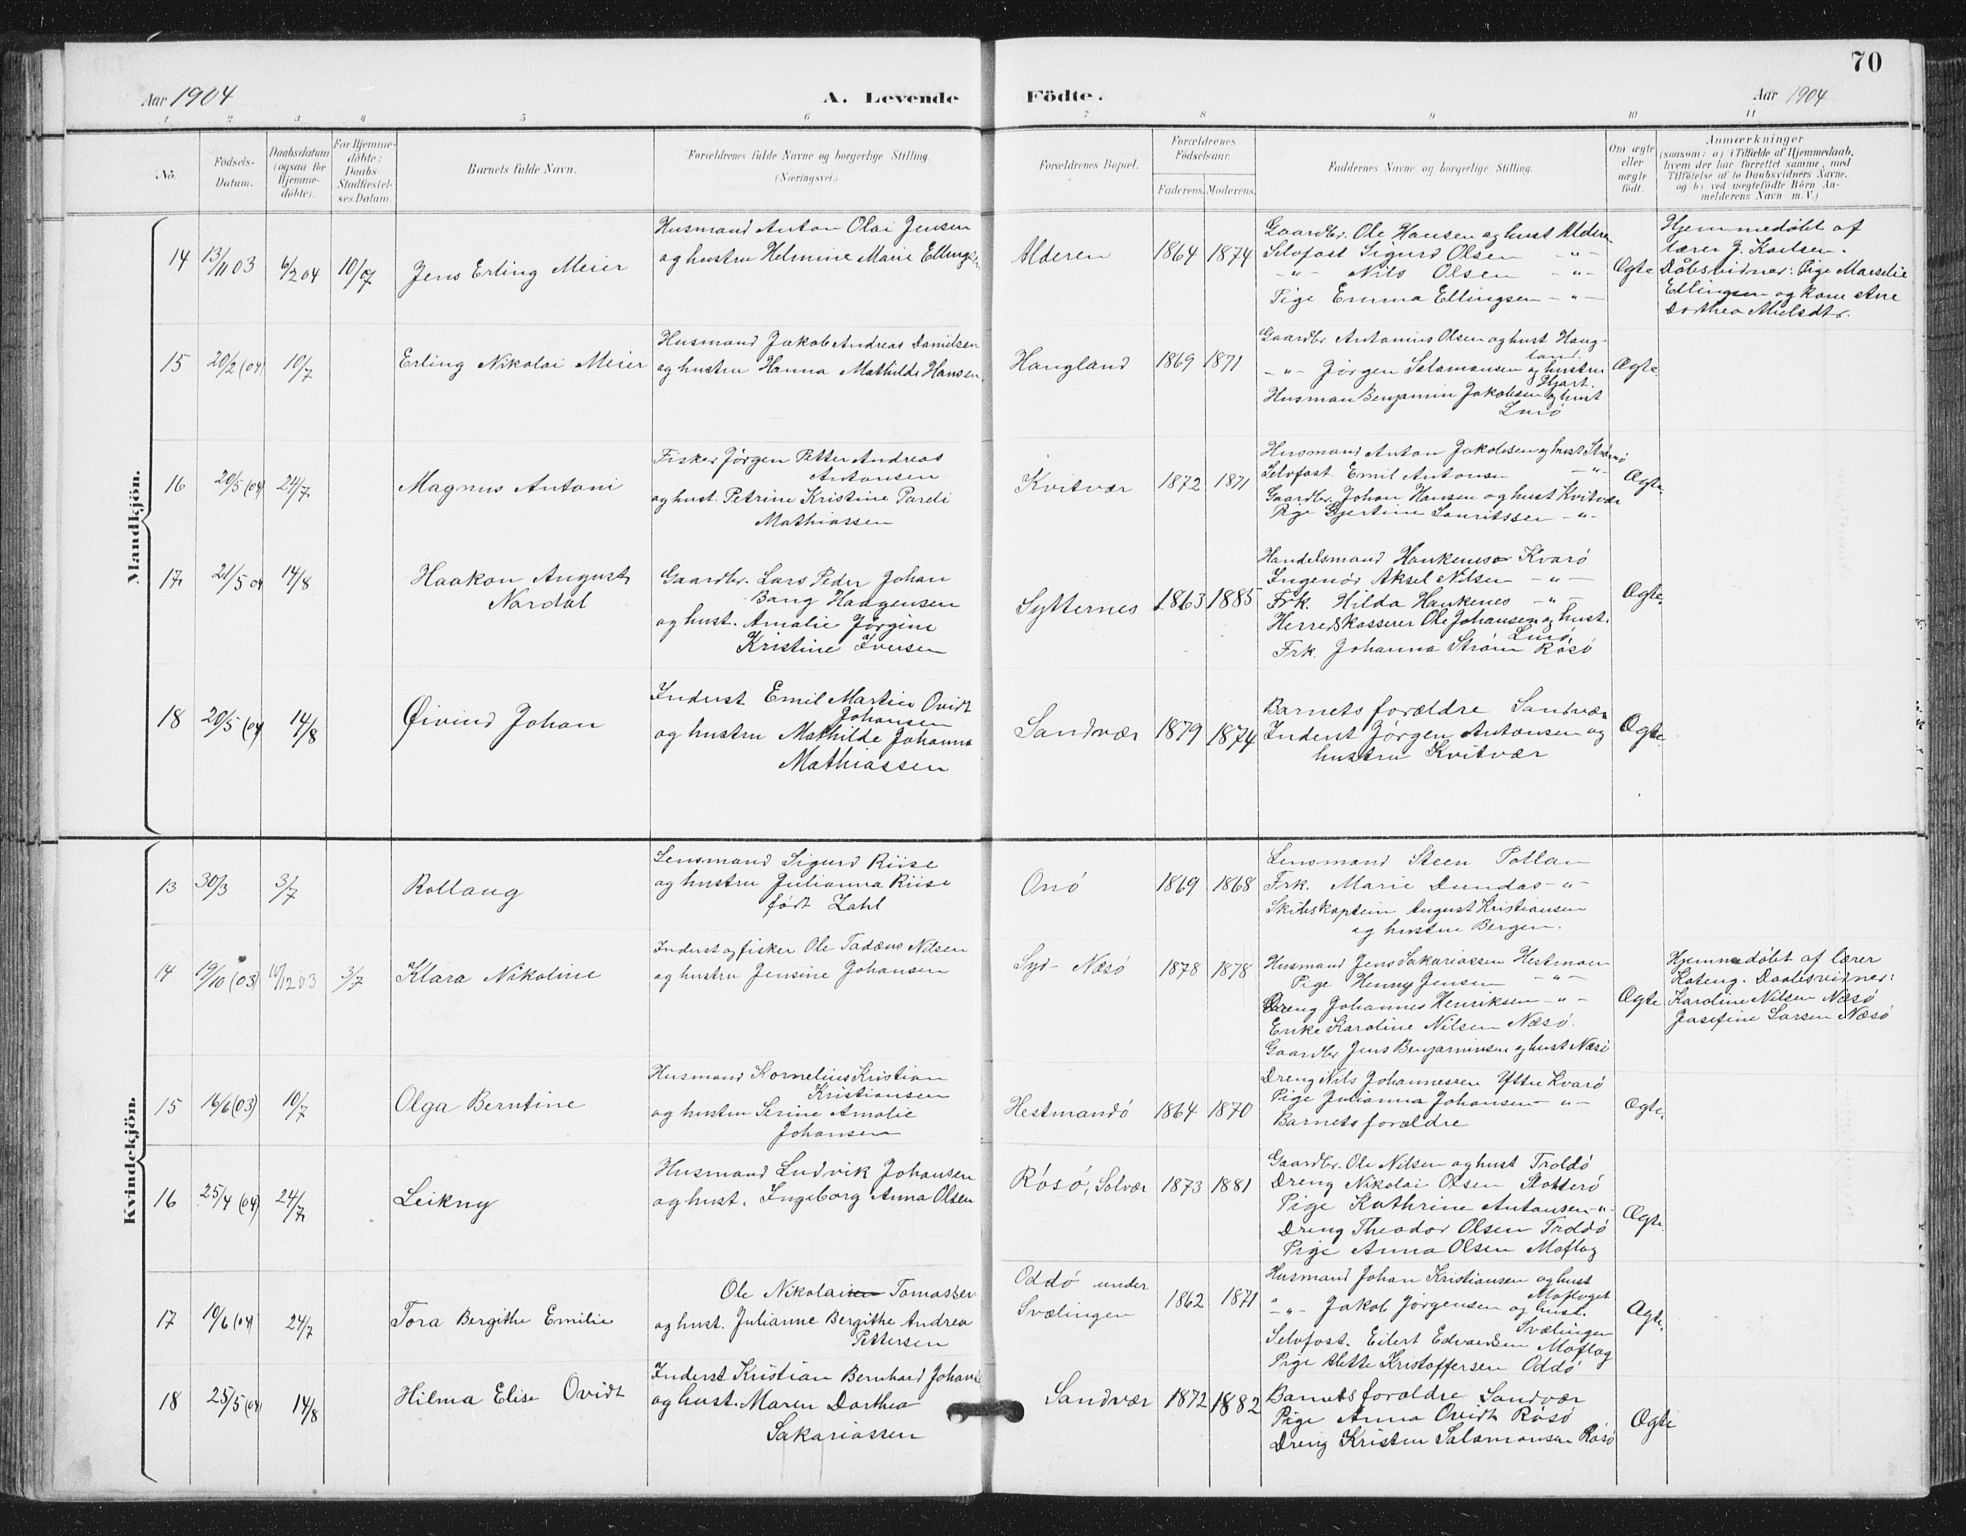 70
Aar 1904
A. Levende
Födte.
Aar 1904
1 2 3 4 5 6 7 8 9 10 11
No.
Födsels-
Datum.
Daabsdatum
(ogsaa for
Hjemme-
döbte).
For Hjemme-
döbte:
Daabs-
Stadfæstel-
ses Datum
Barnets fulde Navn.
Forældrenes fulde Navne og borgerlige Stilling.
(Næringsvei.)
Forældrenes Bopæl.
Forældrenes
Födselsaar.
Faderens. Moderens.
Faddernes Navne og borgerlige Stilling.
Om ægte
eller
uægte
födt.
Anmærkninger
(saasom: a) i Tilfælde af Hjemmedaab,
hvem der har forrettet samme, med
Tilföielse af to Daabsvidners Navne,
og b) ved uægtefödte Börn An-
melderens Navn m.V.)
Mandkjön.
14 13/11 03 6/2 04 10/7
Jens Erling Meier
Husmand Anton Olai Jensen
og hustru Helmine Marie Ellingsen
Alderen 1864 1874
Gaardbr. Ole Hansen og hust Alderen
Selvfost Sigurd Olsen -"-
-"- Nils Olsen -"-
Pige Emma Ellingsen -"-
Ægte
Hjemmedøbt af
lærer J. Karlsen.
Dåbsvidner: Pige Marselie
Ellingsen og Kone Ane
Dorthea Nielsdtr.
15 20/2 (04) 10/7
Erling Nikolai Meier
Husmand Jakob Andreas Danielsen
og hustru Hanna Mathilde Hansen
Haugland 1869 1871
Gaardbr Antonius Olsen og hust Haug-
land.
-"- Jørgen Salamonsen og hustru
Hjart.
Husman Benjamin Jakobsen og hust
Lurö
Ægte.
16 20/5 (04) 24/7
Magnus Antoni
Fisker Jørgen Petter Andreas
Antonsen
og hust. Petrine Kristine Pareli
Mathiassen
Kvitvær 1872 1871
Husmand Anton Jakobsen og hust
Selvfost. Emil Antonsen -"-
Gaardbr. Johan Hansen og hust Kvitvær
Pige Gjertine Lauritssen -"-
Ægte.
17 21/5 04 14/8
Haakon August
Nordal
Gaardbr. Lars Peder Johan
Bang Haagensen
og hust. Amalie Jørgine
Kristine Iversen
Sytternes 1863 1885
Handelsmand Hankenes Kvarö
Ingenør Aksel Nilsen -"-
Frk. Hilda Hankenes -"-
Herredskasserer Ole Johansen og hust.
Lurö
Frk. Johanna Strøm Rösö
Ægte.
18 20/5 (04) 14/8
Øivind Johan
Inderst Emil Martin Ovidt
Johansen
og hustru Mathilde Johanna
Mathiassen
Sandvær 1879 1874
Barnets forældre Sandvær
Inderst Jørgen Antonsen og
hustru Kvitvær
Ægte
Kvindekjön.
13 30/3 3/7
Rollaug
Lensmand Sigurd Riise
og hustru Julianna Riise
født Zahl
Onö 1869 1868
Lensmand Steen Tollan
Frk. Marie Dundas -"-
Skibskaptein August Kristiansen
og hustru Bergen.
14 19/10 (03) 10/12 03 3/7
Klara Nikoline
Inderst og fisker Ole Tadæus Nilsen
og hustru Jensine Johansen
Syd-Næsö 1878 1878
Husmand Jens Sakariassen Hestmoen
Pige Henny Jensen -"-
Dreng Johannes Henriksen -"-
Enke Karoline Nilsen Næsö.
Gaardbr Jens Benjaminsen og hust Næsö
Ægte
Hjemmedøbt af lærer
Koteng. Daabsvidner:
Karoline Nilsen Næsö
Josefine Larsen Næsö
15 16/6 (03) 10/7
Olga Berntine
Husmand Kornelius Kristian
Kristiansen
og hustru Serine Amalie
Johansen
Hestmandö 1864 1870
Dreng Nils Johannessen Yttre Kvarö
Pige Julianna Johansen -"-
Barnets forældre
Ægte.
16 25/4 (04) 24/7
Leikny
Husmand Ludvik Johansen
og hust. Ingeborg Anna Olsen
Rösö, Solvær 1873 1881
Gaardbr. Ole Nilsen og hust Troldö
Dreng Nikolai Olsen Slotterö
Pige Kathrine Antonsen -"-
Dreng Theodor Olsen Troldö
Pige Anna Olsen Moflag
Ægte.
17 10/6 (04) 24/7
Tora Bergithe Emilie
Ole Nikolai Tomassen
og hust. Julianne Bergithe Andrea
Pettersen
Oddö under
Svælingen
1862 1871
Husmand Johan Kristiansen og hust
Moflaget
-"- Jakob Jørgensen og hust.
Svælingen
Selvfost. Eilert Edvardsen Moflag
Pige Mette Kristoffersen Oddö
Ægte.
18 25/5 (04) 14/8
Hilma Elise Ovidt
Inderst Kristian Bernhard Johansen
og hust. Maren Dorthea
Sakariassen
Sandvær 1872 1882
Barnets forældre Sandvær
Pige Anna Ovidt Rösö
Dreng Kristen Salamonsen Rösö
Ægte